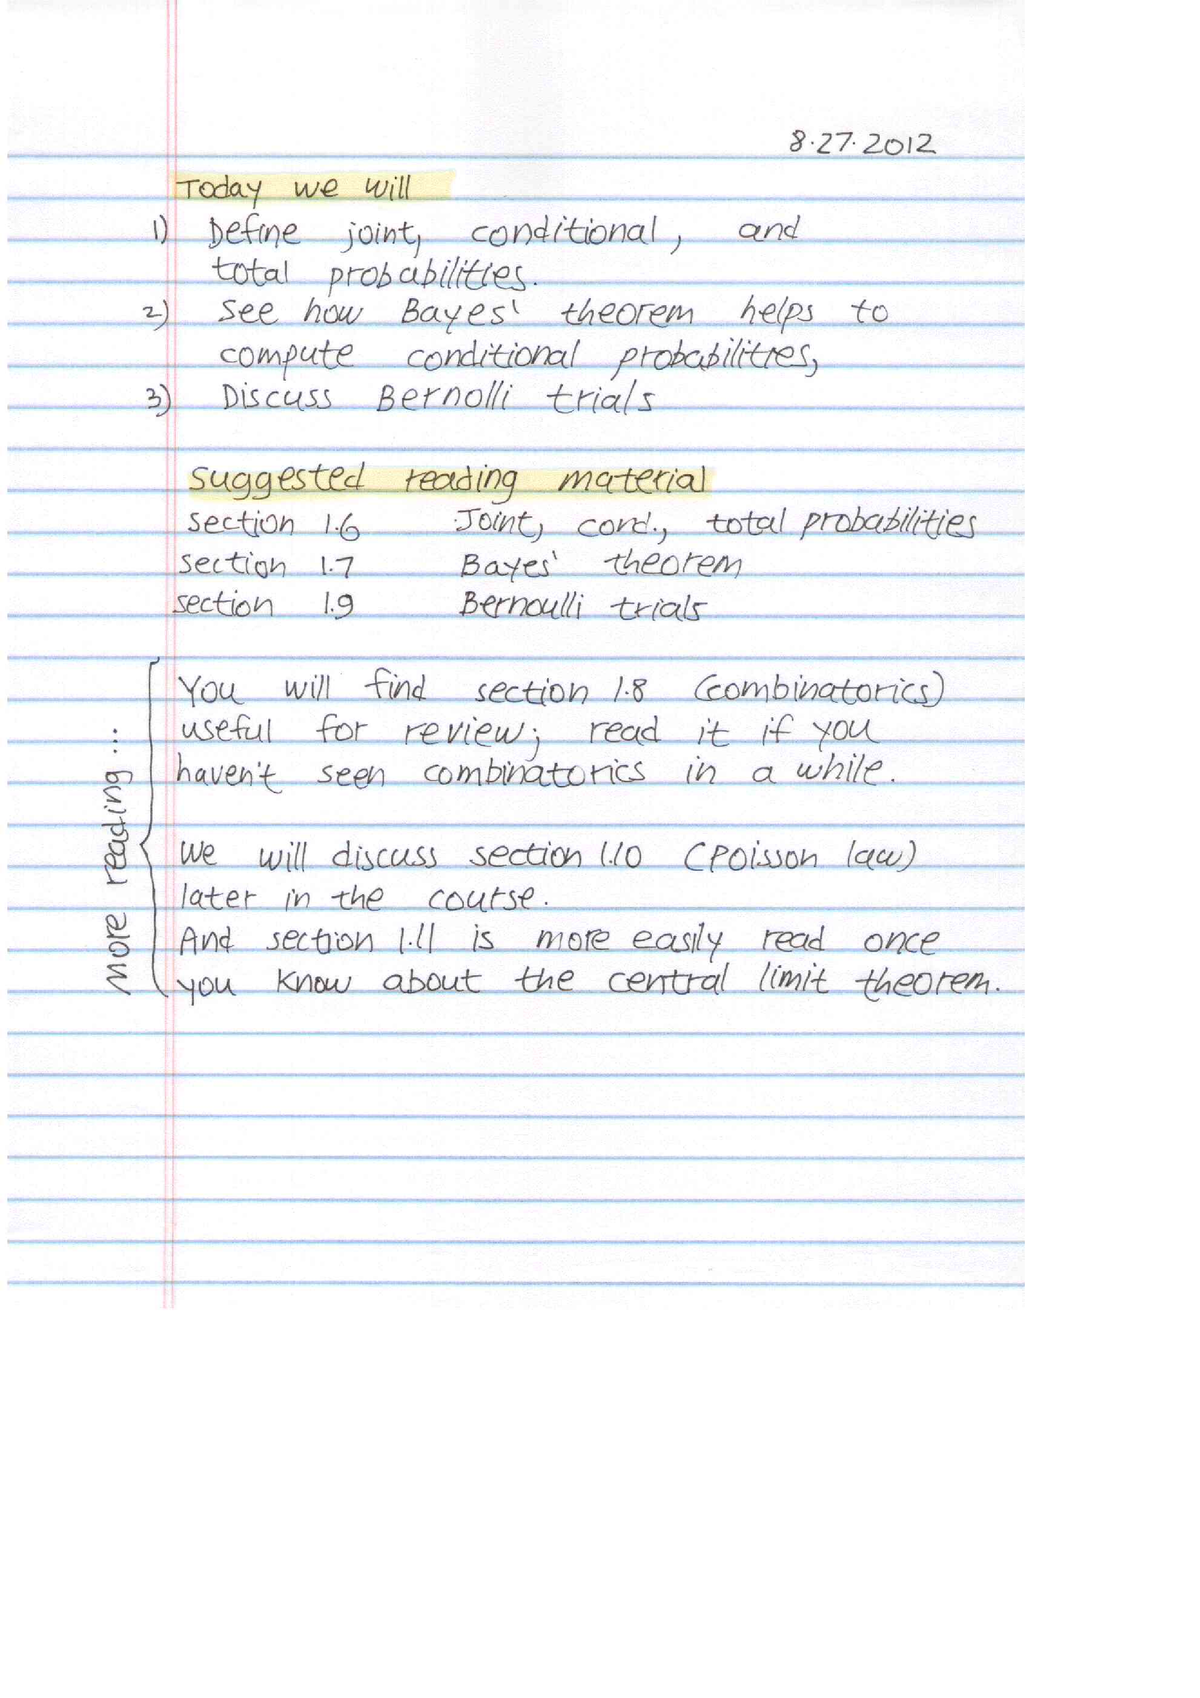 8.27.2012
Today we will
1) Define joint, conditional, and
total probabilities.
2) See how Bayes' theorem helps to
compute conditional probabilities,
3) Discuss Bernolli trials
Suggested reading material
section 1.6 Joint, cond., total probabilities
section 1.7 Bayes' theorem
section 1.9 Bernoulli trials
More reading ...
You will find section 1.8 (combinatorics)
useful for review; read it if you
haven't seen combinatorics in a while.
We will discuss section 1.10 (Poisson law)
later in the course.
And section 1.11 is more easily read once
you know about the central limit theorem.